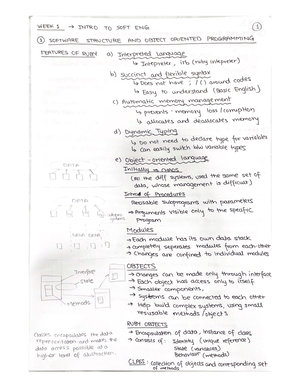 WEEK 1 → INTRO TO SOFT ENG
1
① SOFTWARE STRUCTURE AND OBJECT ORIENTED PROGRAMMING
FEATURES OF RUBY
a) Interpreted language
→ Interpreter, irb (ruby interpreter)
b) Succinct and flexible syntax
→ Does not have ; / () around codes
→ Easy to understand (Basic English)
c) Automatic memory management
→ prevents memory loss / corruption
→ allocates and deallocates memory
d) Dynamic Typing
→ Do not need to declare type for variables
→ Can easily switch b/w variable types
e) Object-oriented language
Initially →
(All the diff systems, used the same set of
data, whose management is difficult)
of Procedures
Reusable Subprograms with parameters
→ Arguments visible only to the specific
program
Modules
→ Each module has its own data stack
→ completely separates modules from each other
→ Changes are confined to individual modules
OBJECTS
→ Changes can be made only through interface
→ Each object has access only to itself
→ Smaller components,
→ Systems can be connected to each other
→ Help build complex systems, using small
reusable methods / objects
RUBY OBJECTS
→ Encapsulation of data, instance of class
→ Consists of: Identity (unique reference)
State (variables)
Behaviour (methods)
CLASS: collection of objects and corresponding set
of methods
DATA
DATA
Interface
state
methods
Classes encapsulates the data
representation and makes the
data access possible at a
higher level of abstraction.